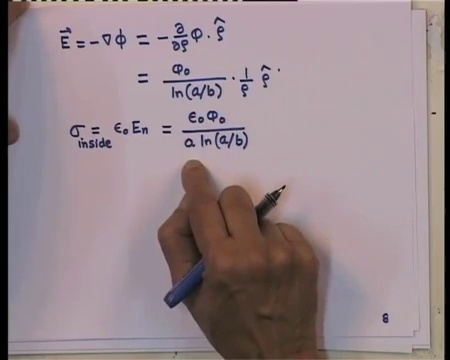 E⃗ = -∇ϕ = - ∂/∂ρ φ . ρ̂
= φ₀/ln(a/b) · 1/ρ ρ̂
σ inside = ϵ₀ Eₙ = ϵ₀ φ₀/a ln(a/b)
8